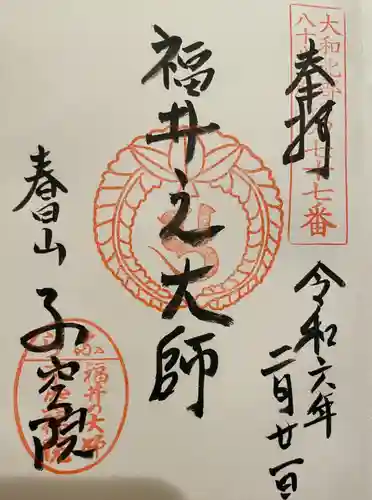 奉拝
令和六年
二月廿一日
福井之大師
春日山
不空院
大和北部
八十
七十七番
福井の大師